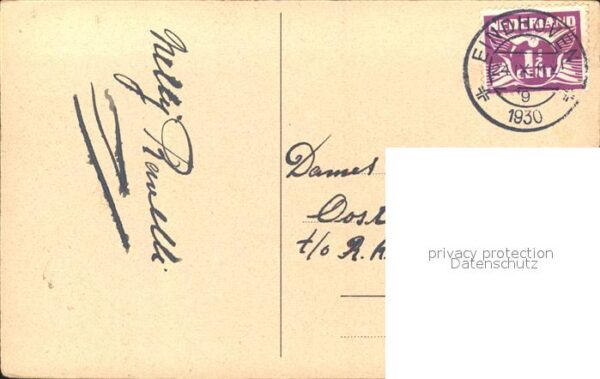 Nelly Ravelli
NEDERLAND
1½
CENT
9
1930
Dames
Oost
t/o R.K.
privacy protection
Datenschutz